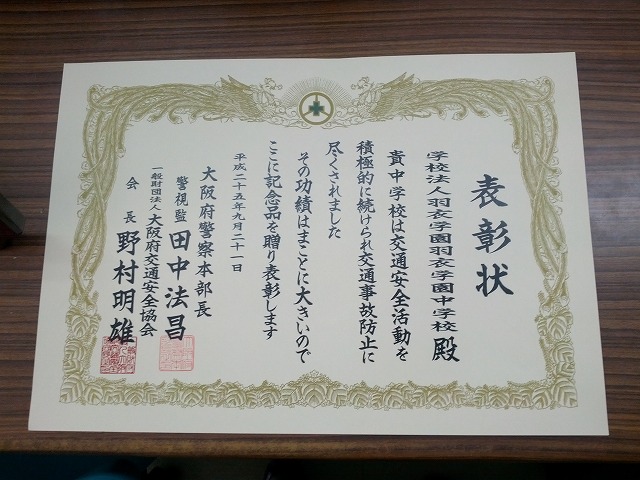 表彰状
学校法人羽衣学園羽衣学園中学校 殿
貴中学校は交通安全活動を
積極的に続けられ交通事故防止に
尽くされました
その功績はまことに大きいので
ここに記念品を贈り表彰します
平成二十五年九月二十一日
大阪府警察本部長
警視監 田中法昌
一般財団法人大阪府交通安全協会
会長 野村明雄